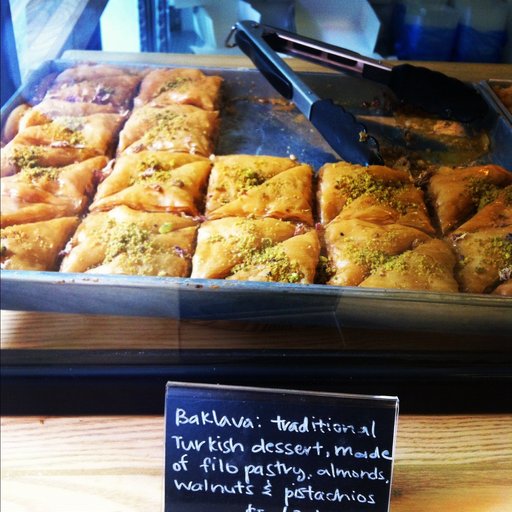 Baklava: traditional
Turkish dessert, made
of filo pastry, almonds,
walnuts & pistachios